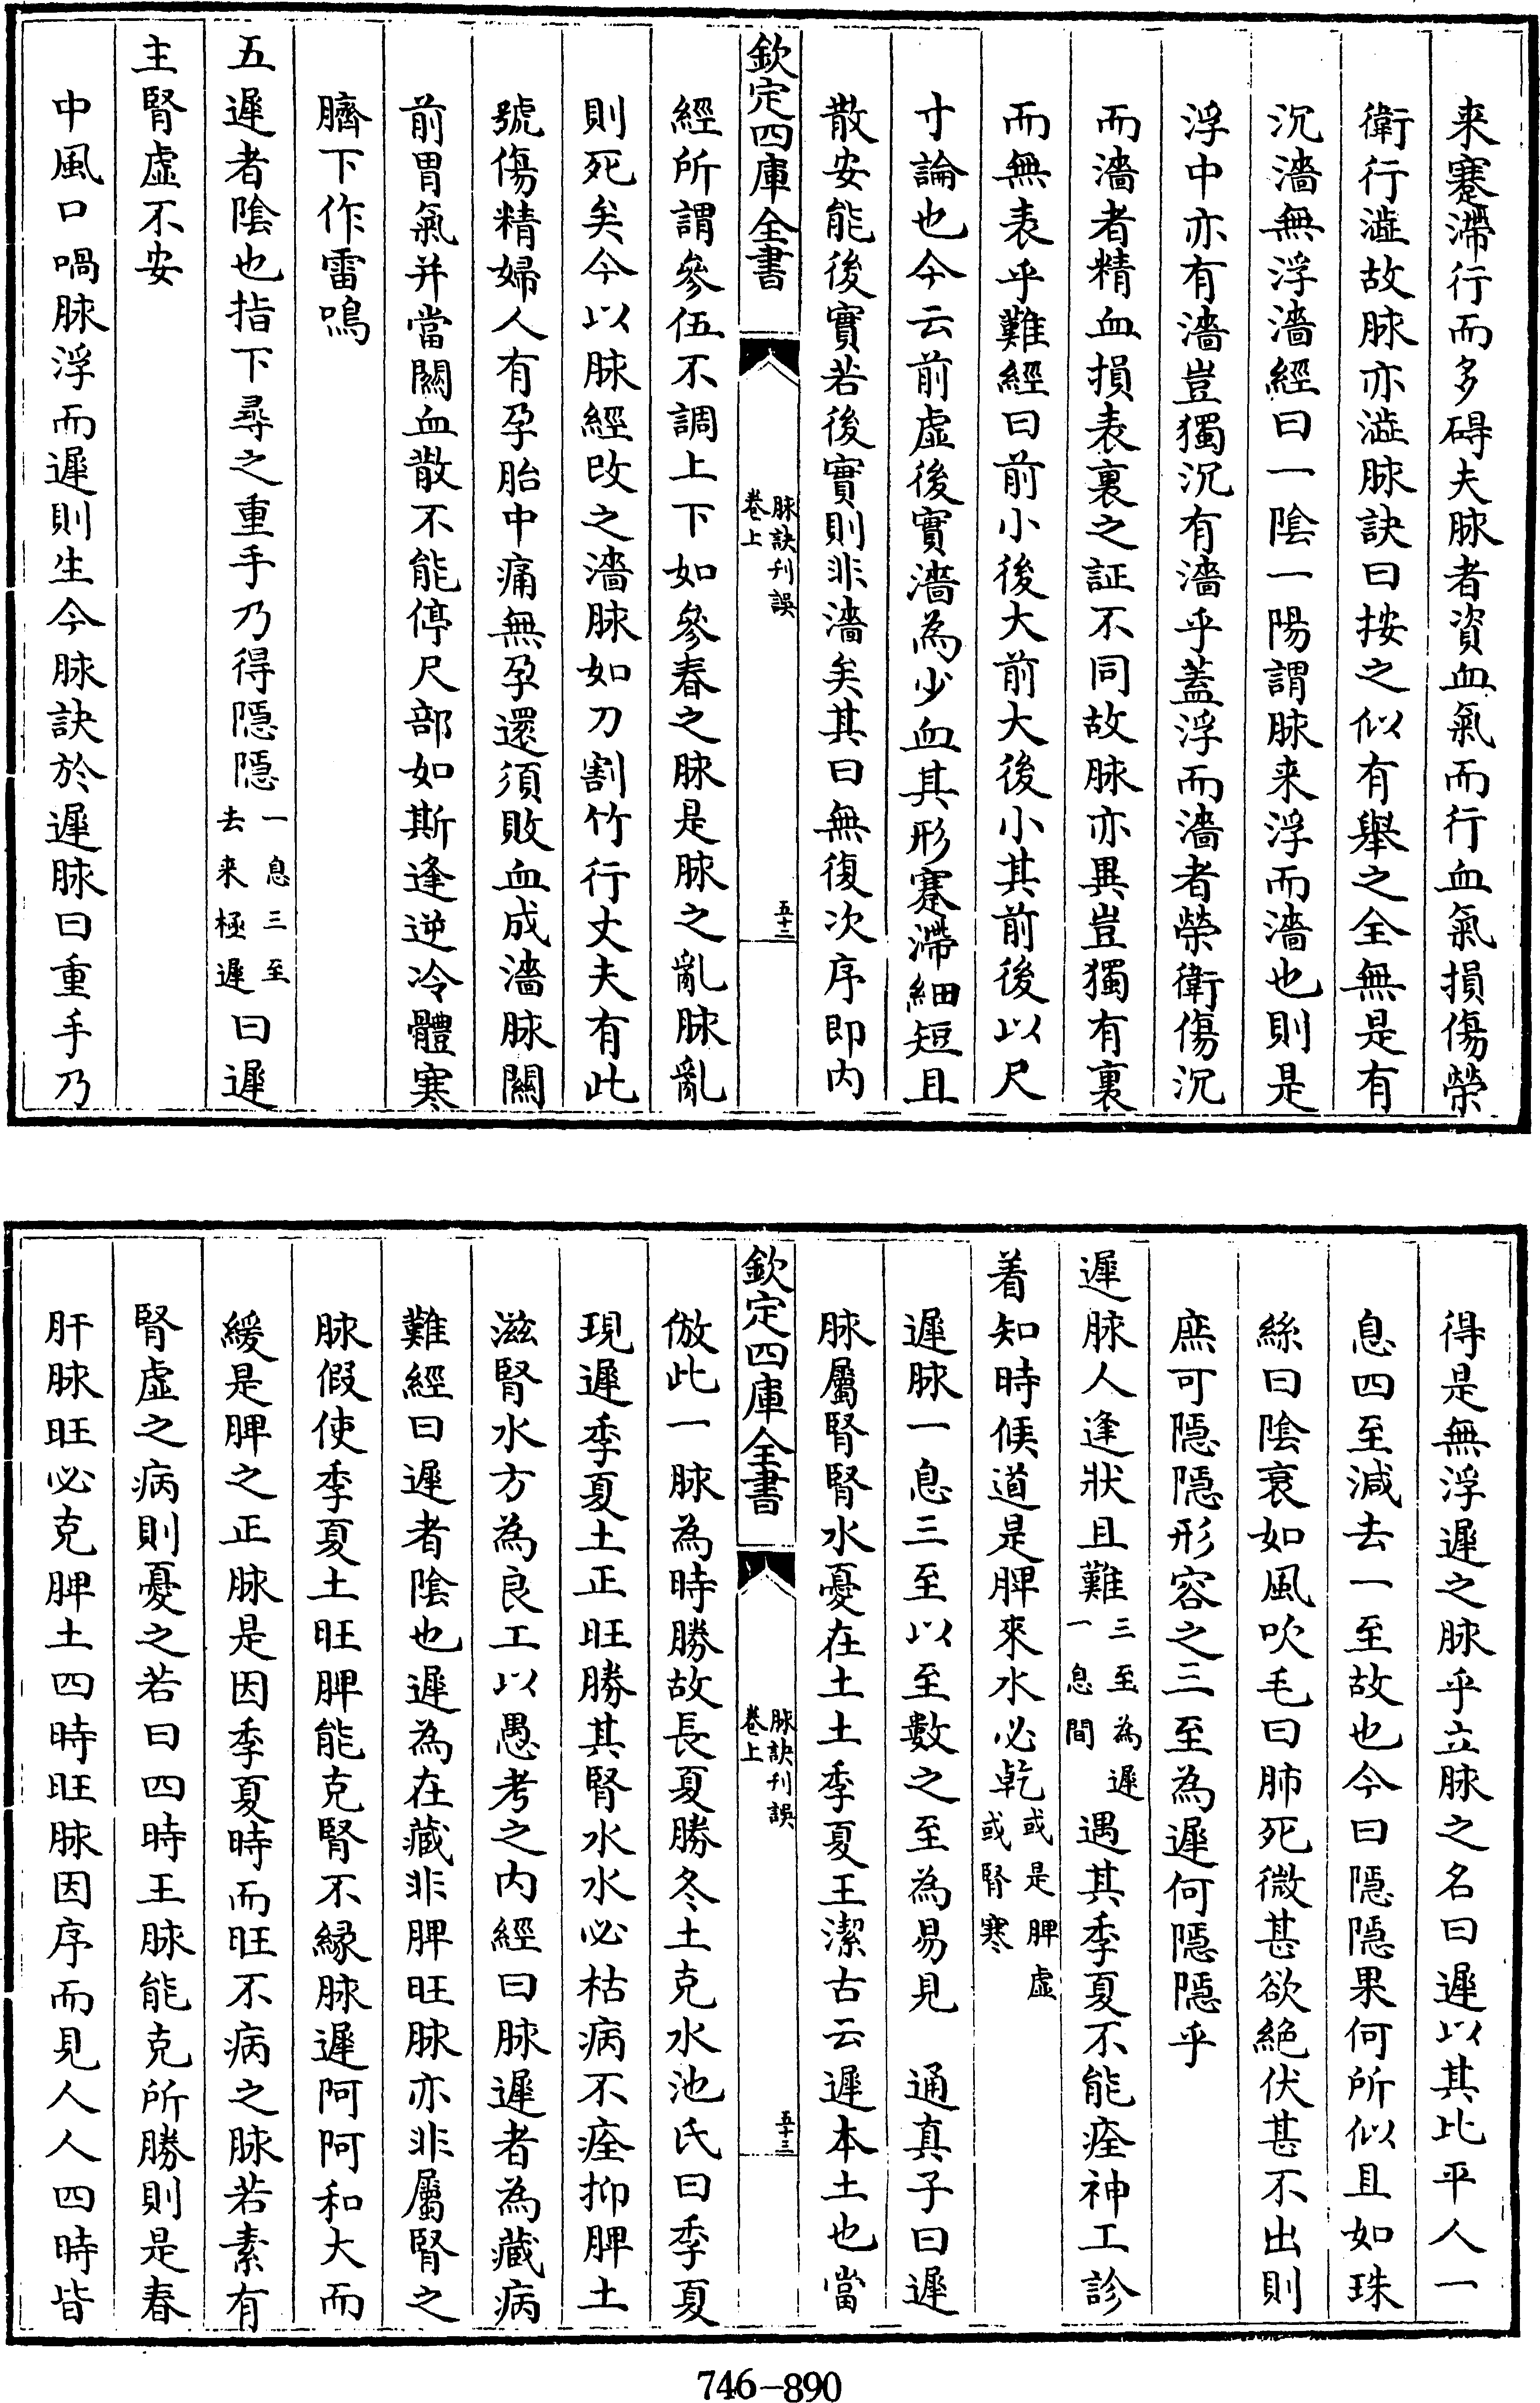 来蹇滯行而多碍夫脉者資血氣而行血氣損傷榮
衛行澁故脉亦澁脉訣曰按之似有舉之全無是有
沉濇無浮濇經曰一陰一陽謂脉来浮而濇也則是
浮中亦有濇豈獨沉有濇乎蓋浮而濇者榮衛傷沉
而濇者精血損表裏之証不同故脉亦異豈獨有裏
而無表乎難經曰前小後大前大後小其前後以尺
寸論也今云前虚後實濇為少血其形蹇滯細短且
散安能後實若後實則非濇矣其曰無復次序即内
欽定四庫全書
脉訣刊誤
卷上
五十二
經所謂參伍不調上下如參舂之脉是脉之亂脉亂
則死矣今以脉經攷之濇脉如刀割竹行丈夫有此
號傷精婦人有孕胎中痛無孕還須敗血成濇脉關
前胃氣并當關血散不能停尺部如斯逢逆冷體寒
臍下作雷鳴
五遲者陰也指下尋之重手乃得隱隱一息三至去来極遲曰遲
主腎虚不安
中風口喎脉浮而遲則生今脉訣於遲脉曰重手乃
得是無浮遲之脉乎立脉之名曰遲以其比平人一
息四至減去一至故也今曰隱隱果何所似且如珠
絲曰陰衰如風吹毛曰肺死微甚欲絶伏甚不出則
庶可隱隱形容之三至為遲何隱隱乎
遲脉人逢狀且難三至為遲一息間遇其季夏不能痊神工診
着知時候道是脾來水必乾或是脾虚或腎寒
遲脉一息三至以至數之至為易見　通真子曰遲
脉屬腎腎水憂在土土季夏王潔古云遲本土也當
欽定四庫全書
脉訣刊誤
卷上
五十三
倣此一脉為時勝故長夏勝冬土克水池氏曰季夏
現遲季夏土正旺勝其腎水水必枯病不痊抑脾土
滋腎水方為良工以愚考之内經曰脉遲者為藏病
難經曰遲者陰也遲為在藏非脾旺脉亦非屬腎之
脉假使季夏土旺脾能克腎不緣脉遲阿阿和大而
緩是脾之正脉是因季夏時而旺不病之脉若素有
腎虚之病則憂之若曰四時王脉能克所勝則是春
肝脉旺必克脾土四時旺脉因序而見人人四時皆
746-890